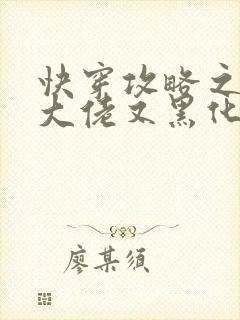 快穿攻略之
大佬又黑化
廖某须